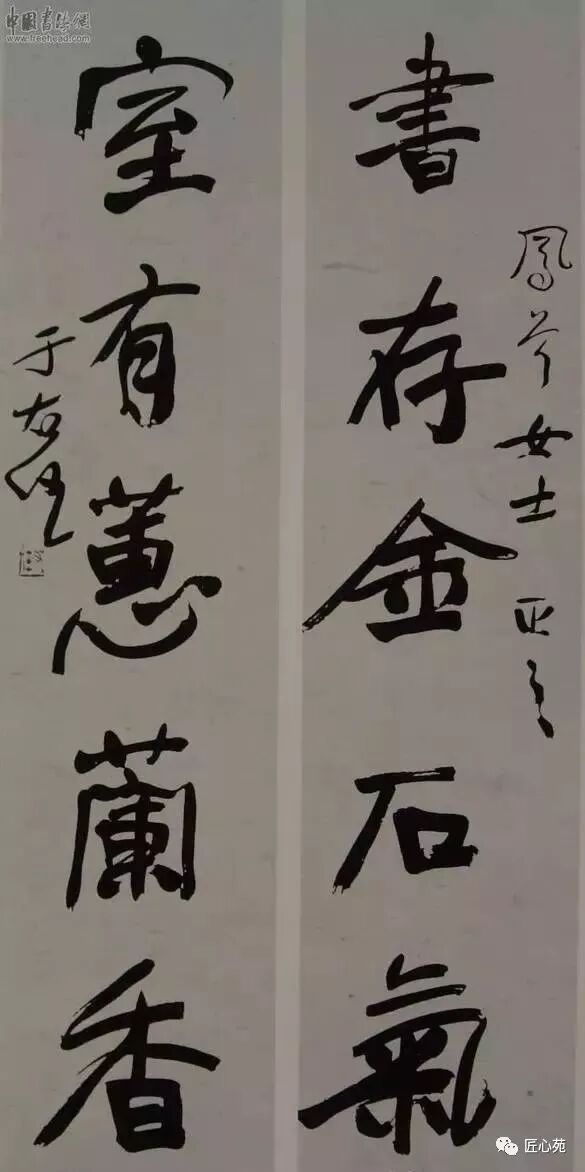 中國書法網
www.freehead.com
鳳岑女士 正之
書存金石氣
室有蕙蘭香
于右任
匠心苑